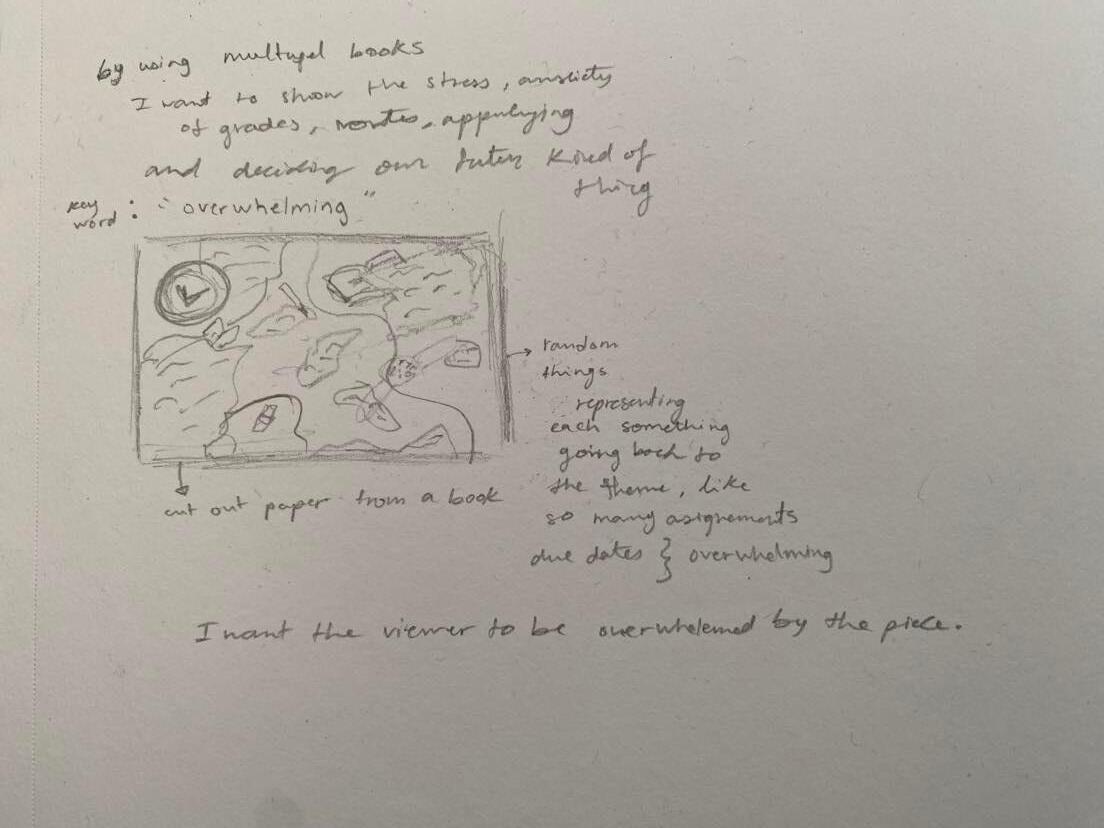 by using multupel books
I want to show the stress, anxciety
of grades, , appulying
and deciding our futer kined of
thing
key
word : "overwhelming"
random
things
representing
each something
going back to
the theme, like
so many asignements
due dates } overwhelming
cut out paper from a book
I want the viewer to be overwhelemed by the piece.